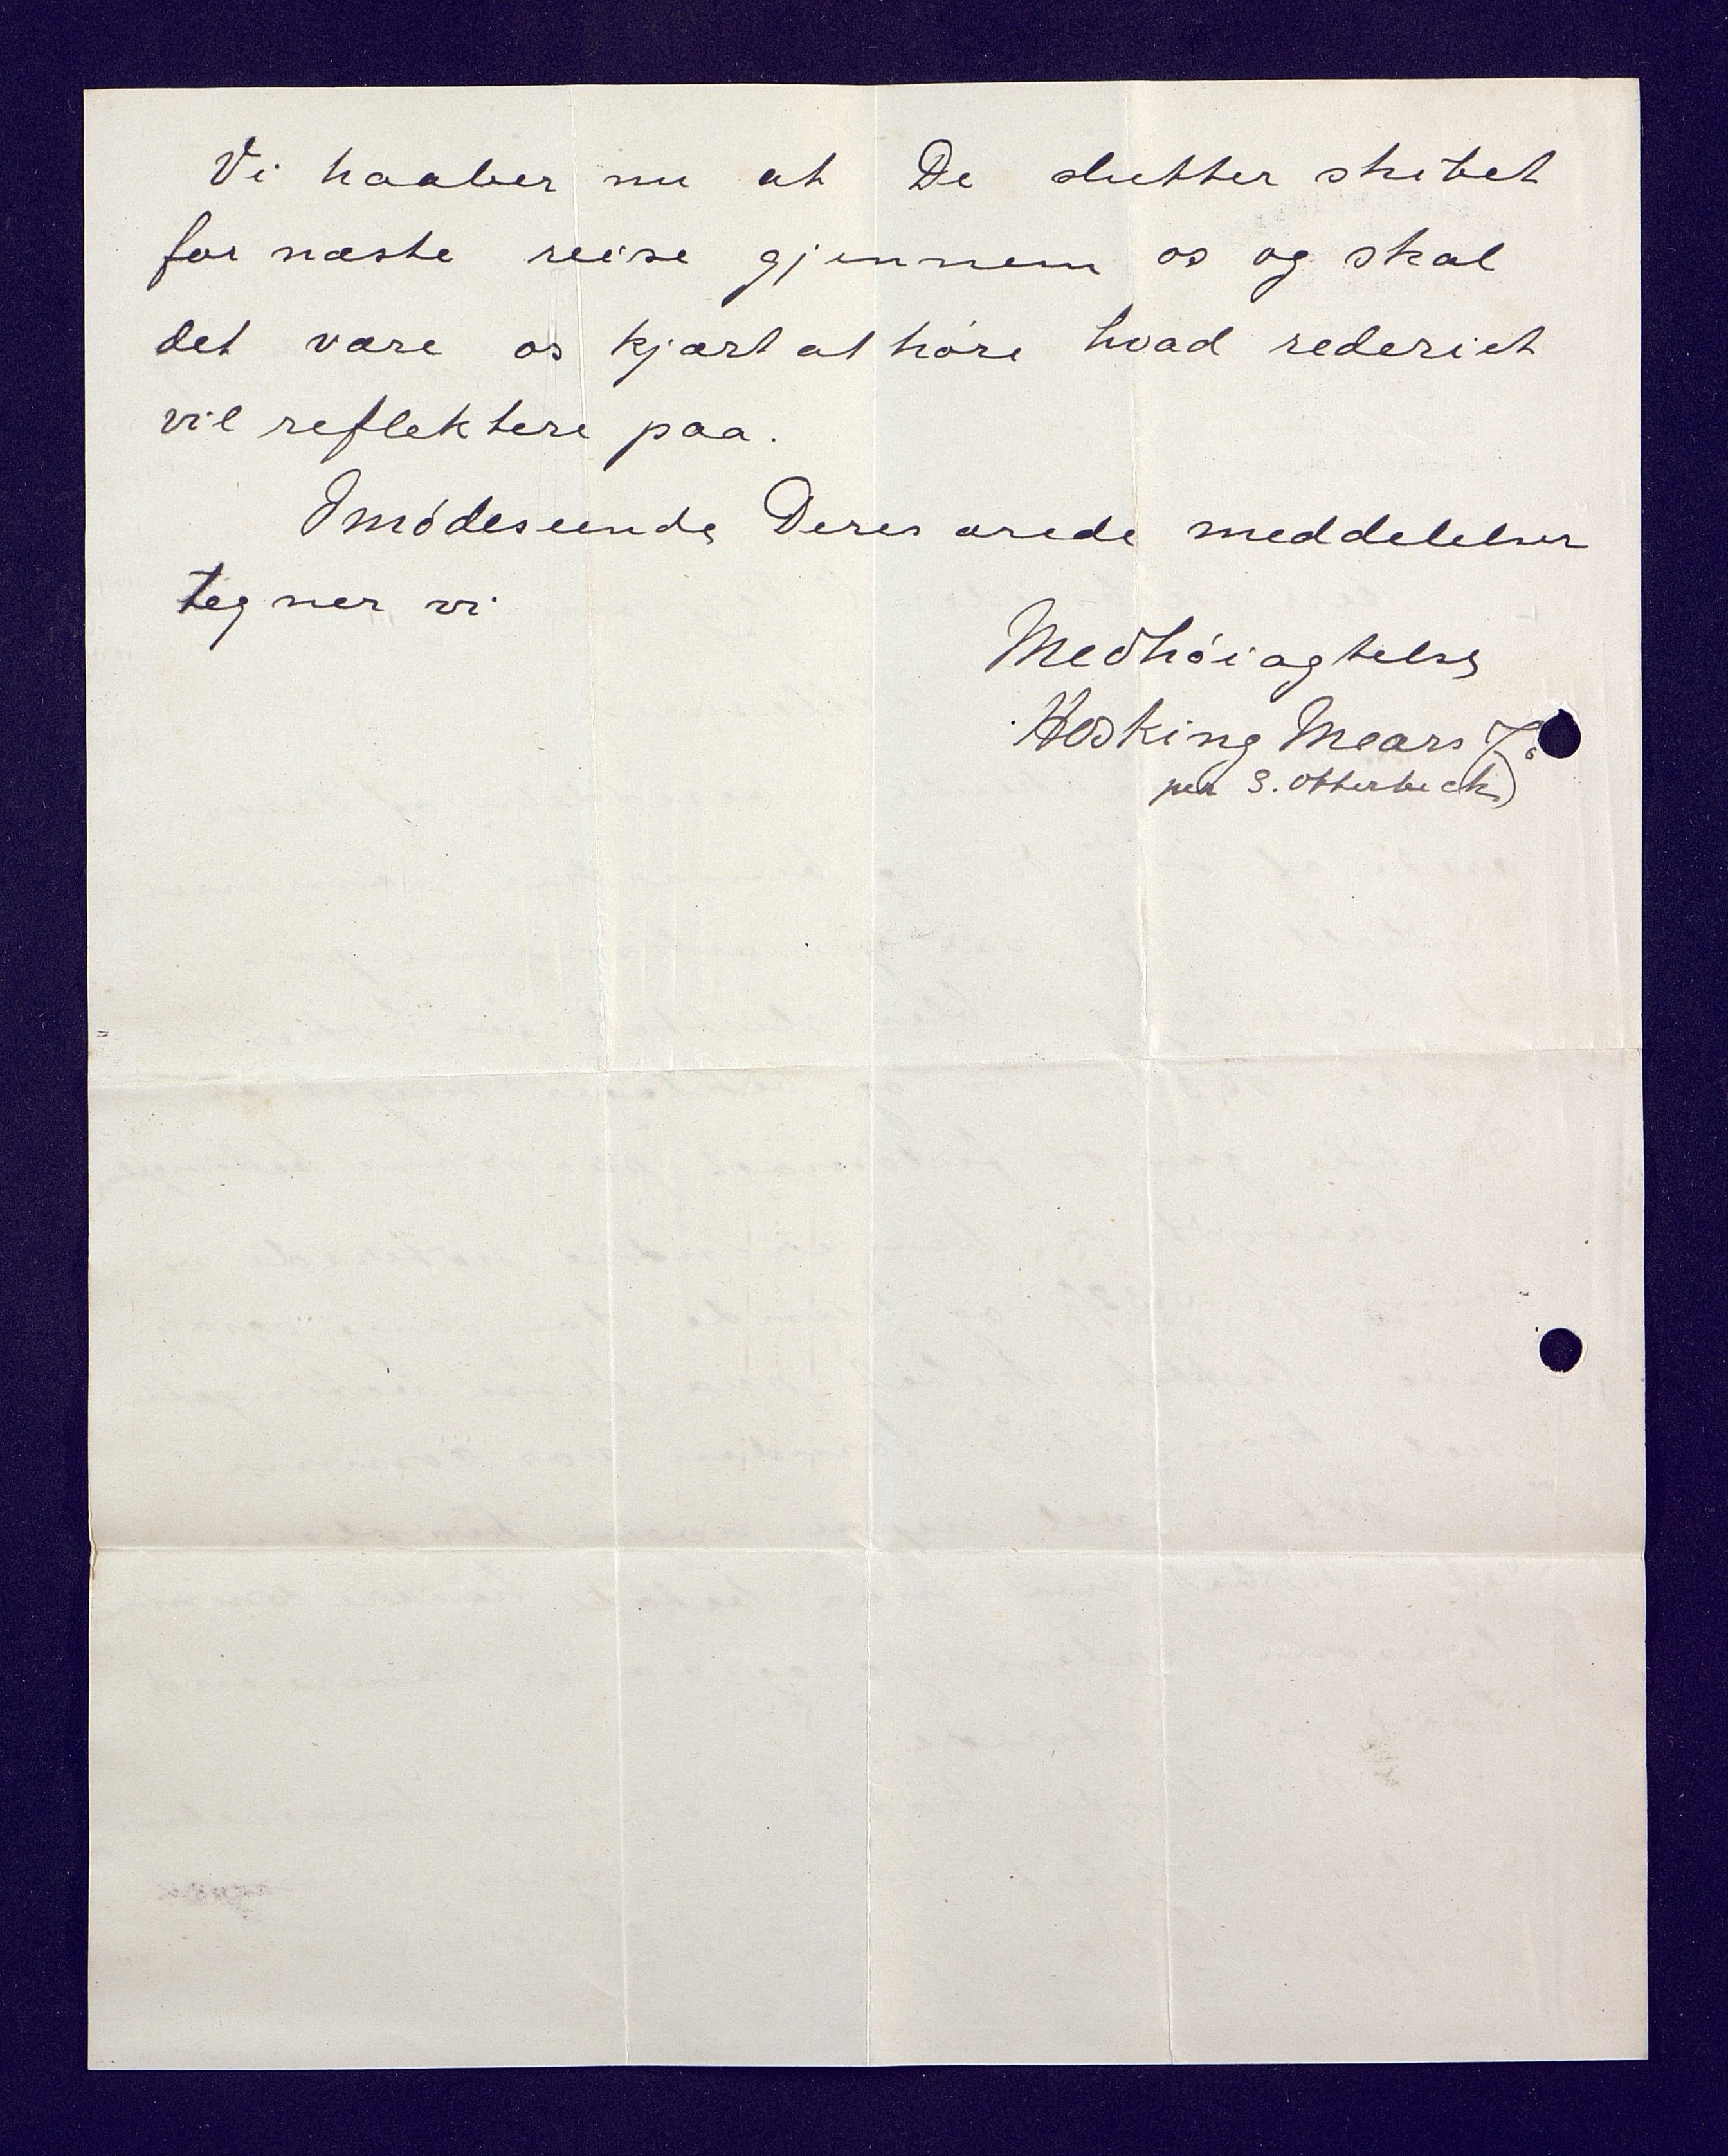 Vi haaber nu at De slutter skibet
for næste reise gjennem os og skal
det være os kjært at høre hvad rederiet
vil reflektere paa.
Imødeseende Deres ærede meddelelser
tegner vi
Med høiagtelse
Hosking Mears
per S. Otterbech